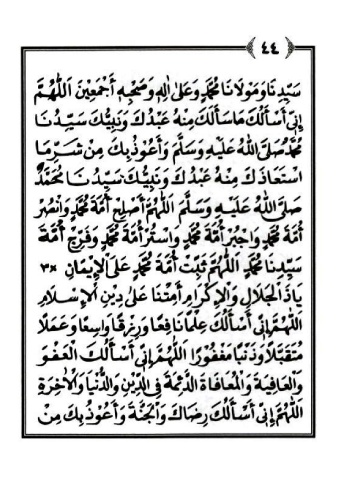 ٤٤
سَيِّدِنَا وَمَوْلَانَا مُحَمَّدٍ وَعَلَىٰ اٰلِهِ وَصَحْبِهِ أَجْمَعِينَ اَللّٰهُمَّ
إِنِّى أَسْأَلُكَ مَا سَأَلَكَ مِنْهُ عَبْدُكَ وَنَبِيُّكَ سَيِّدُنَا
مُحَمَّدٌ صَلَّى اللهُ عَلَيْهِ وَسَلَّمَ وَأَعُوْذُ بِكَ مِنْ شَرِّ مَا
اسْتَعَاذَكَ مِنْهُ عَبْدُكَ وَنَبِيُّكَ سَيِّدُنَا مُحَمَّدٌ
صَلَّى اللهُ عَلَيْهِ وَسَلَّمَ اَللّٰهُمَّ أَصْلِحْ أُمَّةَ مُحَمَّدٍ وَانْصُرْ
أُمَّةَ مُحَمَّدٍ وَاجْبُرْ أُمَّةَ مُحَمَّدٍ وَاسْتُرْ أُمَّةَ مُحَمَّدٍ وَفَرِّجْ أُمَّةَ
سَيِّدِنَا مُحَمَّدٍ اَللّٰهُمَّ ثَبِّتْ أُمَّةَ مُحَمَّدٍ عَلَى الْإِيْمَانِ ×٣
يَا ذَا الْجَلَالِ وَالْإِكْرَامِ أَمِتْنَا عَلَى دِيْنِ الْإِسْلَامِ
اَللّٰهُمَّ إِنِّى أَسْأَلُكَ عِلْمًا نَافِعًا وَرِزْقًا وَاسِعًا وَعَمَلًا
مُتَقَبَّلًا وَذَنْبًا مَغْفُوْرًا اَللّٰهُمَّ إِنِّى أَسْأَلُكَ الْعَفْوَ
وَالْعَافِيَةَ وَالْمُعَافَاةَ الدَّائِمَةَ فِى الدِّيْنِ وَالدُّنْيَا وَالْاٰخِرَةِ
اَللّٰهُمَّ إِنِّى أَسْأَلُكَ رِضَاكَ وَالْجَنَّةَ وَأَعُوْذُ بِكَ مِنْ